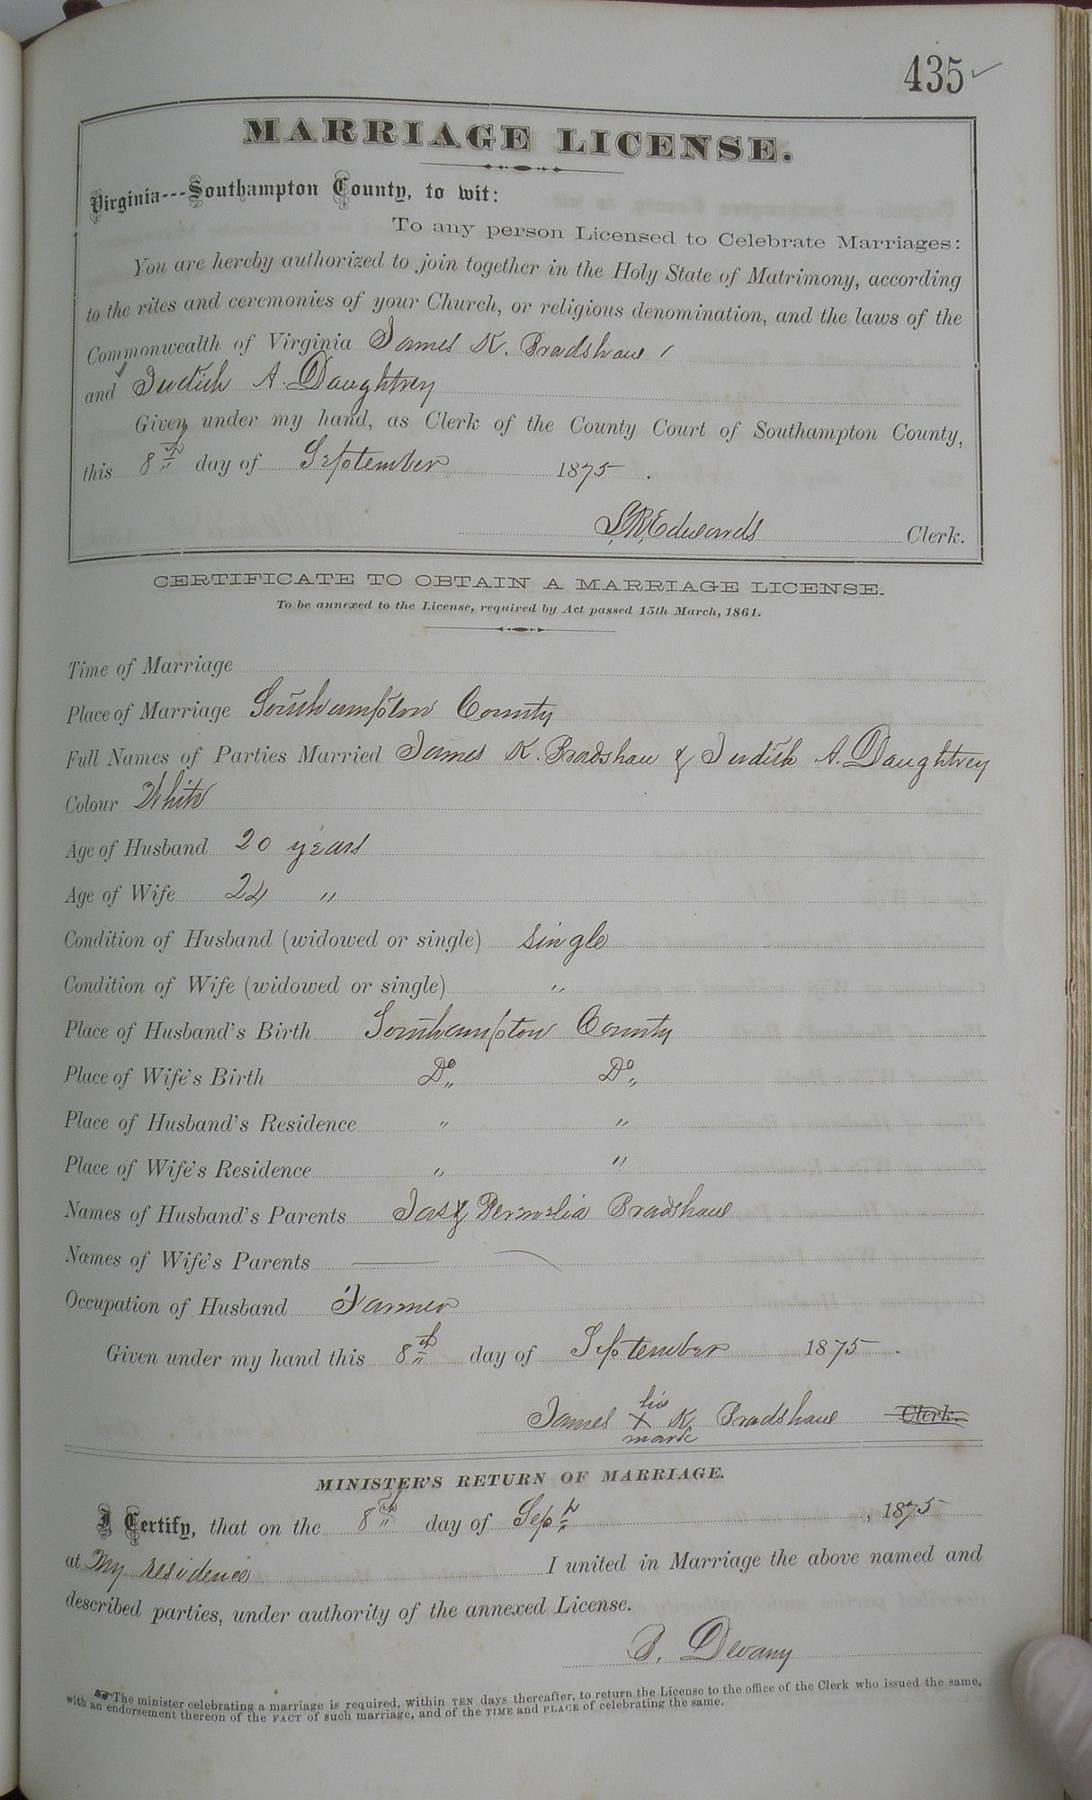 435 ✓
MARRIAGE LICENSE.
Virginia---Southampton County, to wit:
To any person Licensed to Celebrate Marriages:
You are hereby authorized to join together in the Holy State of Matrimony, according
to the rites and ceremonies of your Church, or religious denomination, and the laws of the
Commonwealth of Virginia James K. Bradshaw
and Judith A. Daughtrey
Given under my hand, as Clerk of the County Court of Southampton County,
this 8th day of September 1875.
L.R. Edwards Clerk.
CERTIFICATE TO OBTAIN A MARRIAGE LICENSE.
To be annexed to the License, required by Act passed 15th March, 1861.
Time of Marriage
Place of Marriage Southampton County
Full Names of Parties Married James K. Bradshaw & Judith A. Daughtrey
Colour White
Age of Husband 20 years
Age of Wife 24 "
Condition of Husband (widowed or single) single
Condition of Wife (widowed or single) "
Place of Husband's Birth Southampton County
Place of Wife's Birth Do Do
Place of Husband's Residence " "
Place of Wife's Residence " "
Names of Husband's Parents Jas & Permelia Bradshaw
Names of Wife's Parents
Occupation of Husband Farmer
Given under my hand this 8th day of September 1875.
James his X mark K. Bradshaw Clerk.
MINISTER'S RETURN OF MARRIAGE.
I Certify, that on the 8th day of Sept, 1875
at My residence I united in Marriage the above named and
described parties, under authority of the annexed License.
Devany
The minister celebrating a marriage is required, within TEN days thereafter, to return the License to the office of the Clerk who issued the same,
with an endorsement thereon of the FACT of such marriage, and of the TIME and PLACE of celebrating the same.